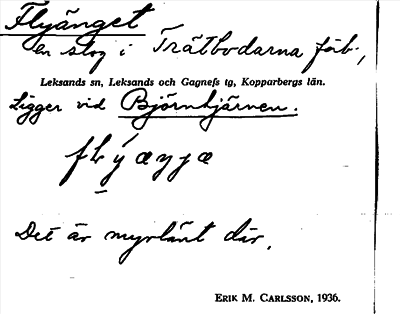 Flyänget
en slog i Trätbodarna förb.,
Leksands sn, Leksands och Gagnefs tg, Kopparbergs län.
Ligger vid Björntjärnen.
Det är myrlänt där.
ERIK M. CARLSSON, 1936.